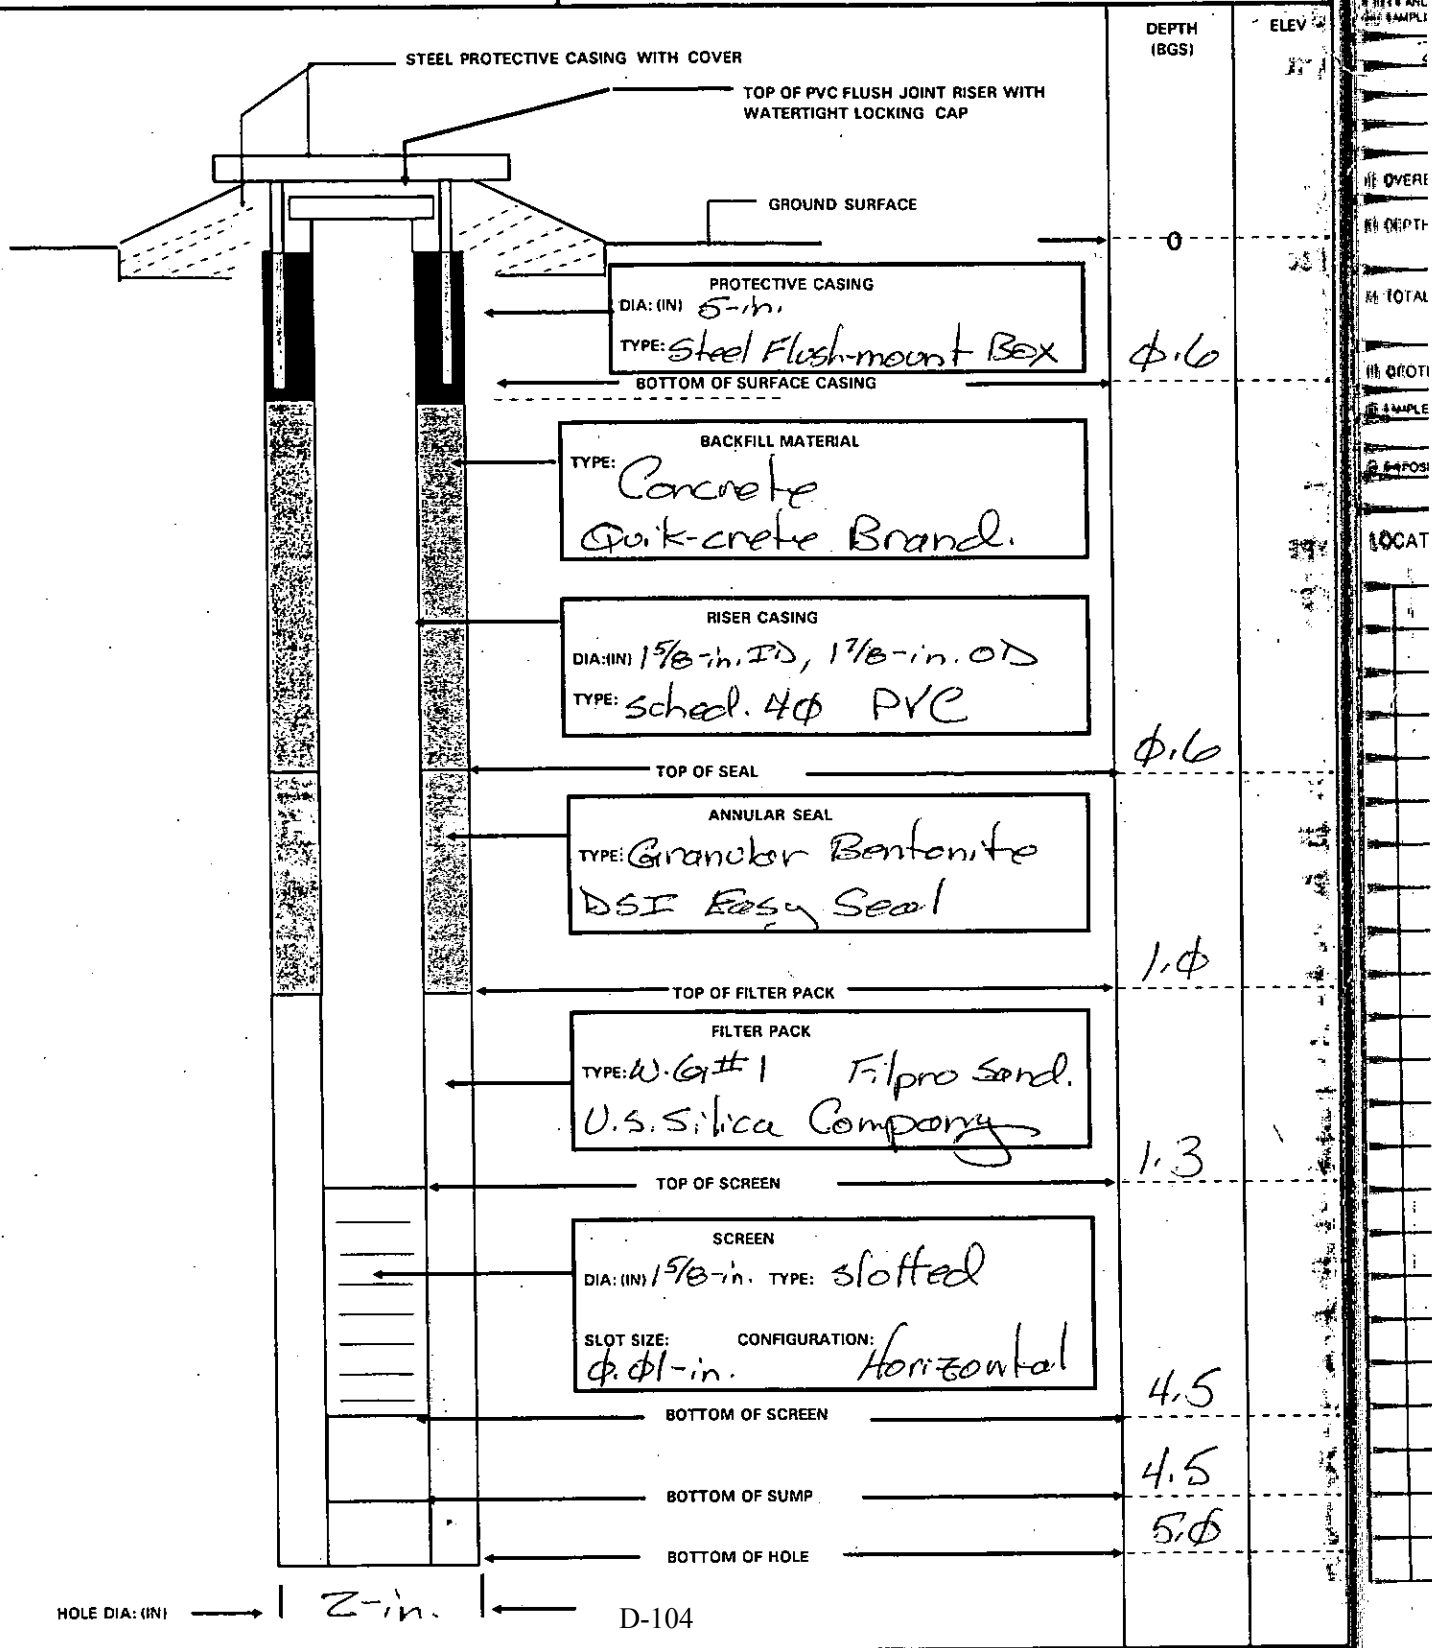 DEPTH
(BGS)
ELEV
STEEL PROTECTIVE CASING WITH COVER
TOP OF PVC FLUSH JOINT RISER WITH
WATERTIGHT LOCKING CAP
GROUND SURFACE
0
PROTECTIVE CASING
DIA: (IN) 5-in.
TYPE: Steel Flush-mount Box
φ.6
BOTTOM OF SURFACE CASING
BACKFILL MATERIAL
TYPE:
Concrete
Quik-crete Brand.
RISER CASING
DIA:(IN) 1 5/8-in. ID, 1 7/8-in. OD
TYPE: sched. 4φ PVC
φ.6
TOP OF SEAL
ANNULAR SEAL
TYPE: Granular Bentonite
DSI Easy Seal
1.φ
TOP OF FILTER PACK
FILTER PACK
TYPE: W.G #1 Filpro Sand.
U.S. Silica Company
1.3
TOP OF SCREEN
SCREEN
DIA: (IN) 1 5/8-in. TYPE: slotted
SLOT SIZE: CONFIGURATION:
φ.φ1-in. Horizontal
4.5
BOTTOM OF SCREEN
4.5
BOTTOM OF SUMP
5.φ
BOTTOM OF HOLE
HOLE DIA: (IN) 2-in.
D-104
OVERB
DEPTH
TOTAL
LOCAT